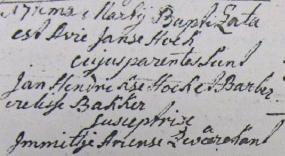 Martij Baptizata
est Arie Janse Hoek
cujus parentes sunt
Jan Hendrickse Hoek et Barber
Bakker
susceptrix
Immitje Ariense